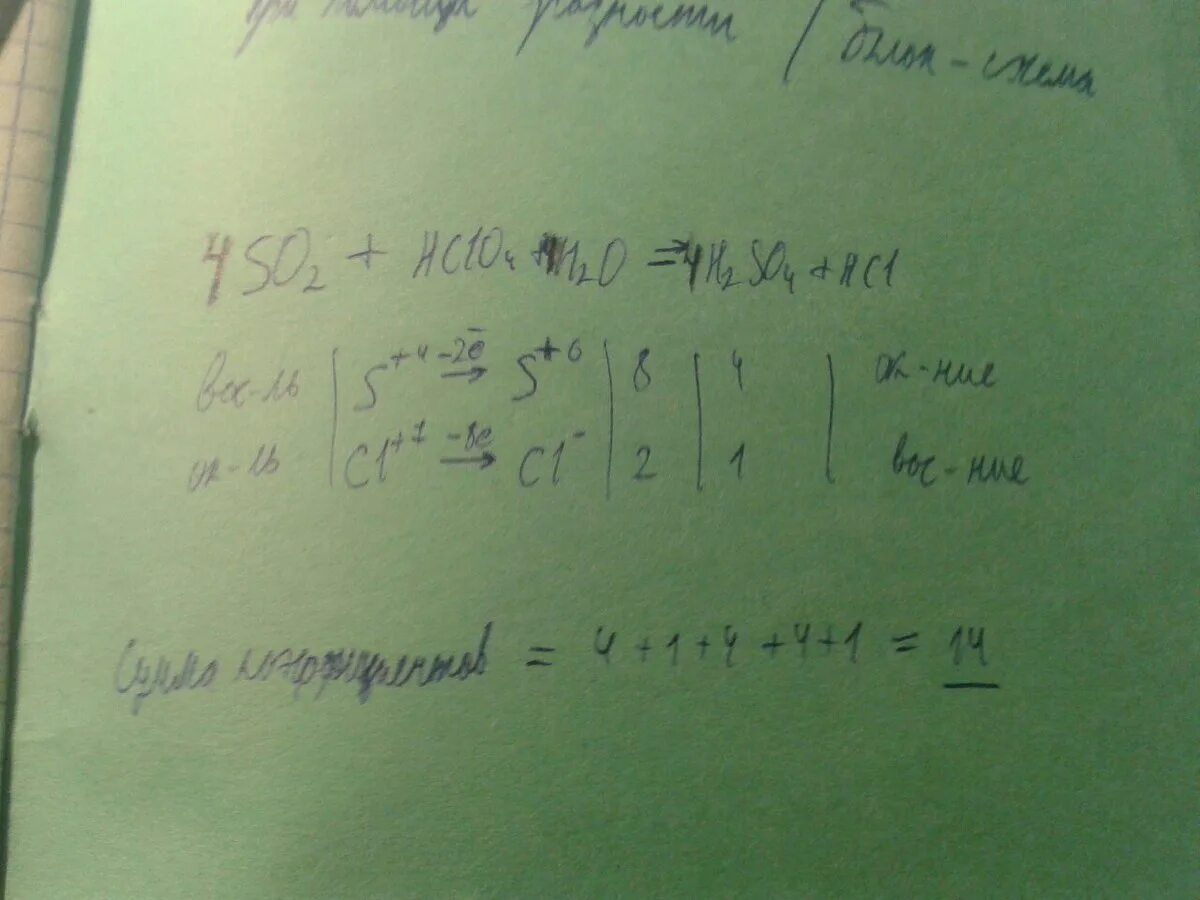 при помощи разности / блок-схема
4SO₂ + HClO₄ + 4H₂O = 4H₂SO₄ + HCl
вос-ль | S⁺⁴ -2e̅→ S⁺⁶ | 8 | 4 | ок-ние
ок-ль | Cl⁺⁷ -8e→ Cl⁻ | 2 | 1 | вос-ние
Сумма коэффициентов = 4+1+4+4+1 = 14